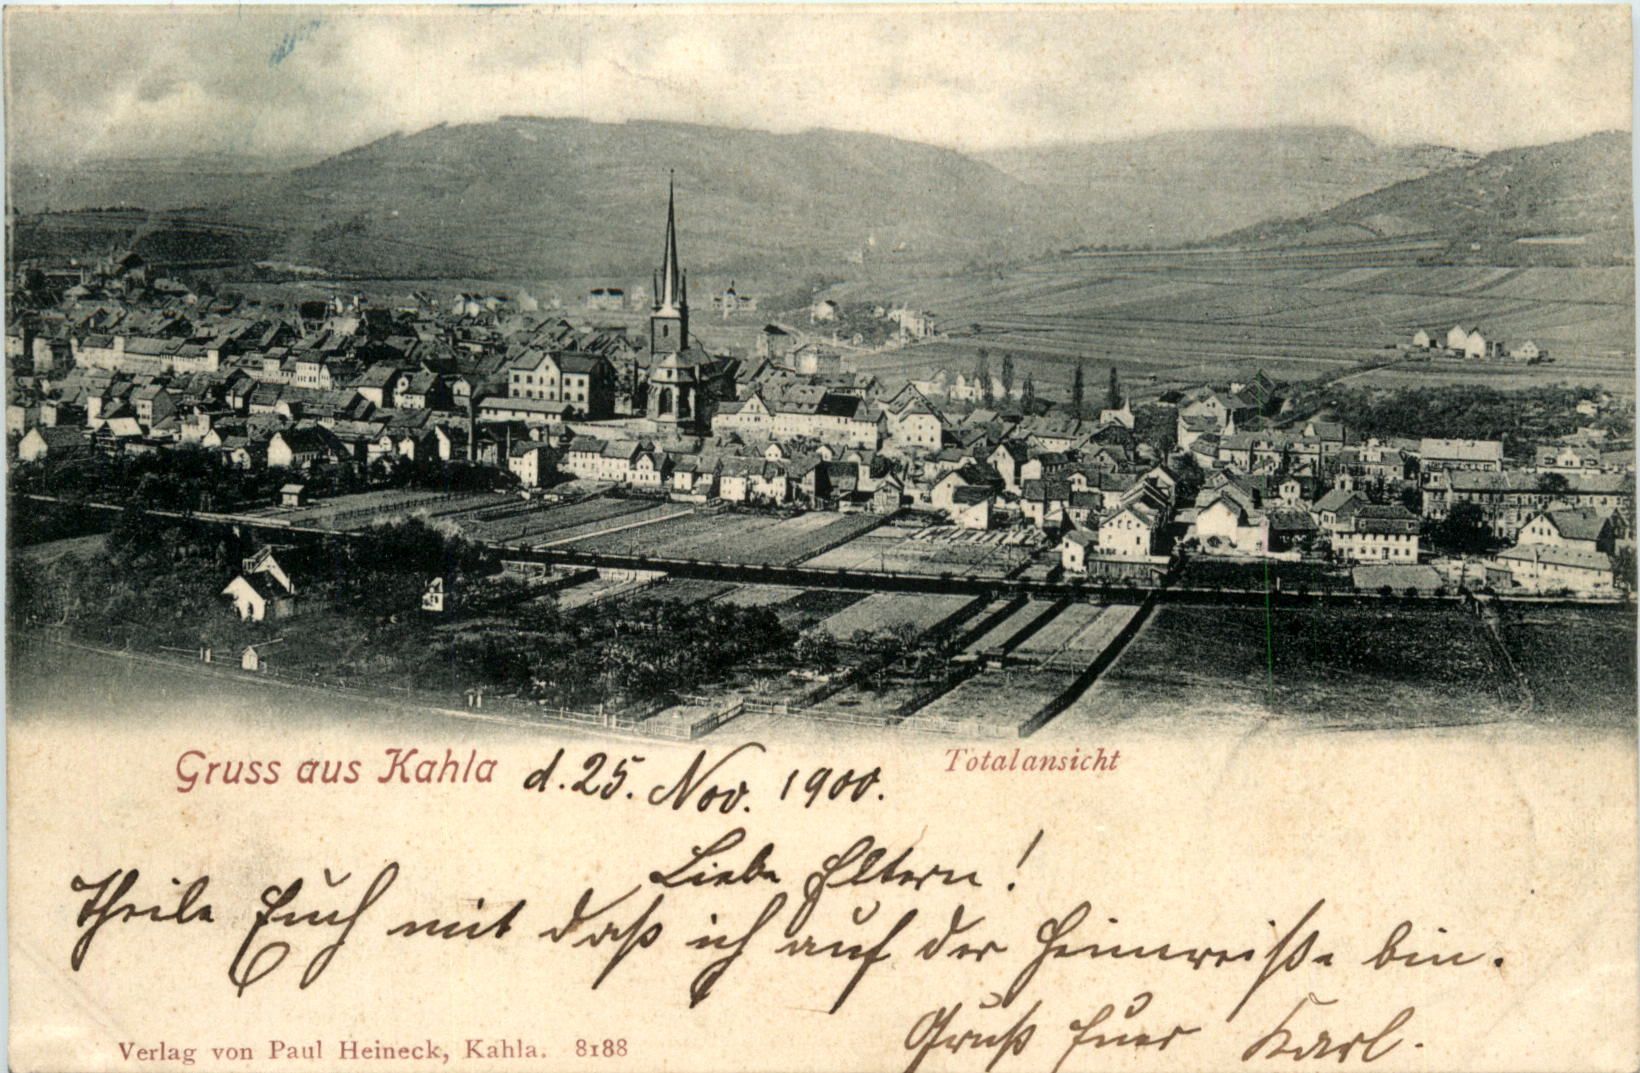 Gruss aus Kahla d. 25. Nov. 1900. Totalansicht
Liebe Eltern!
Theile Euch mit daß ich auf der Heimreiße bin.
Gruß Euer Karl.
Verlag von Paul Heineck, Kahla. 8188